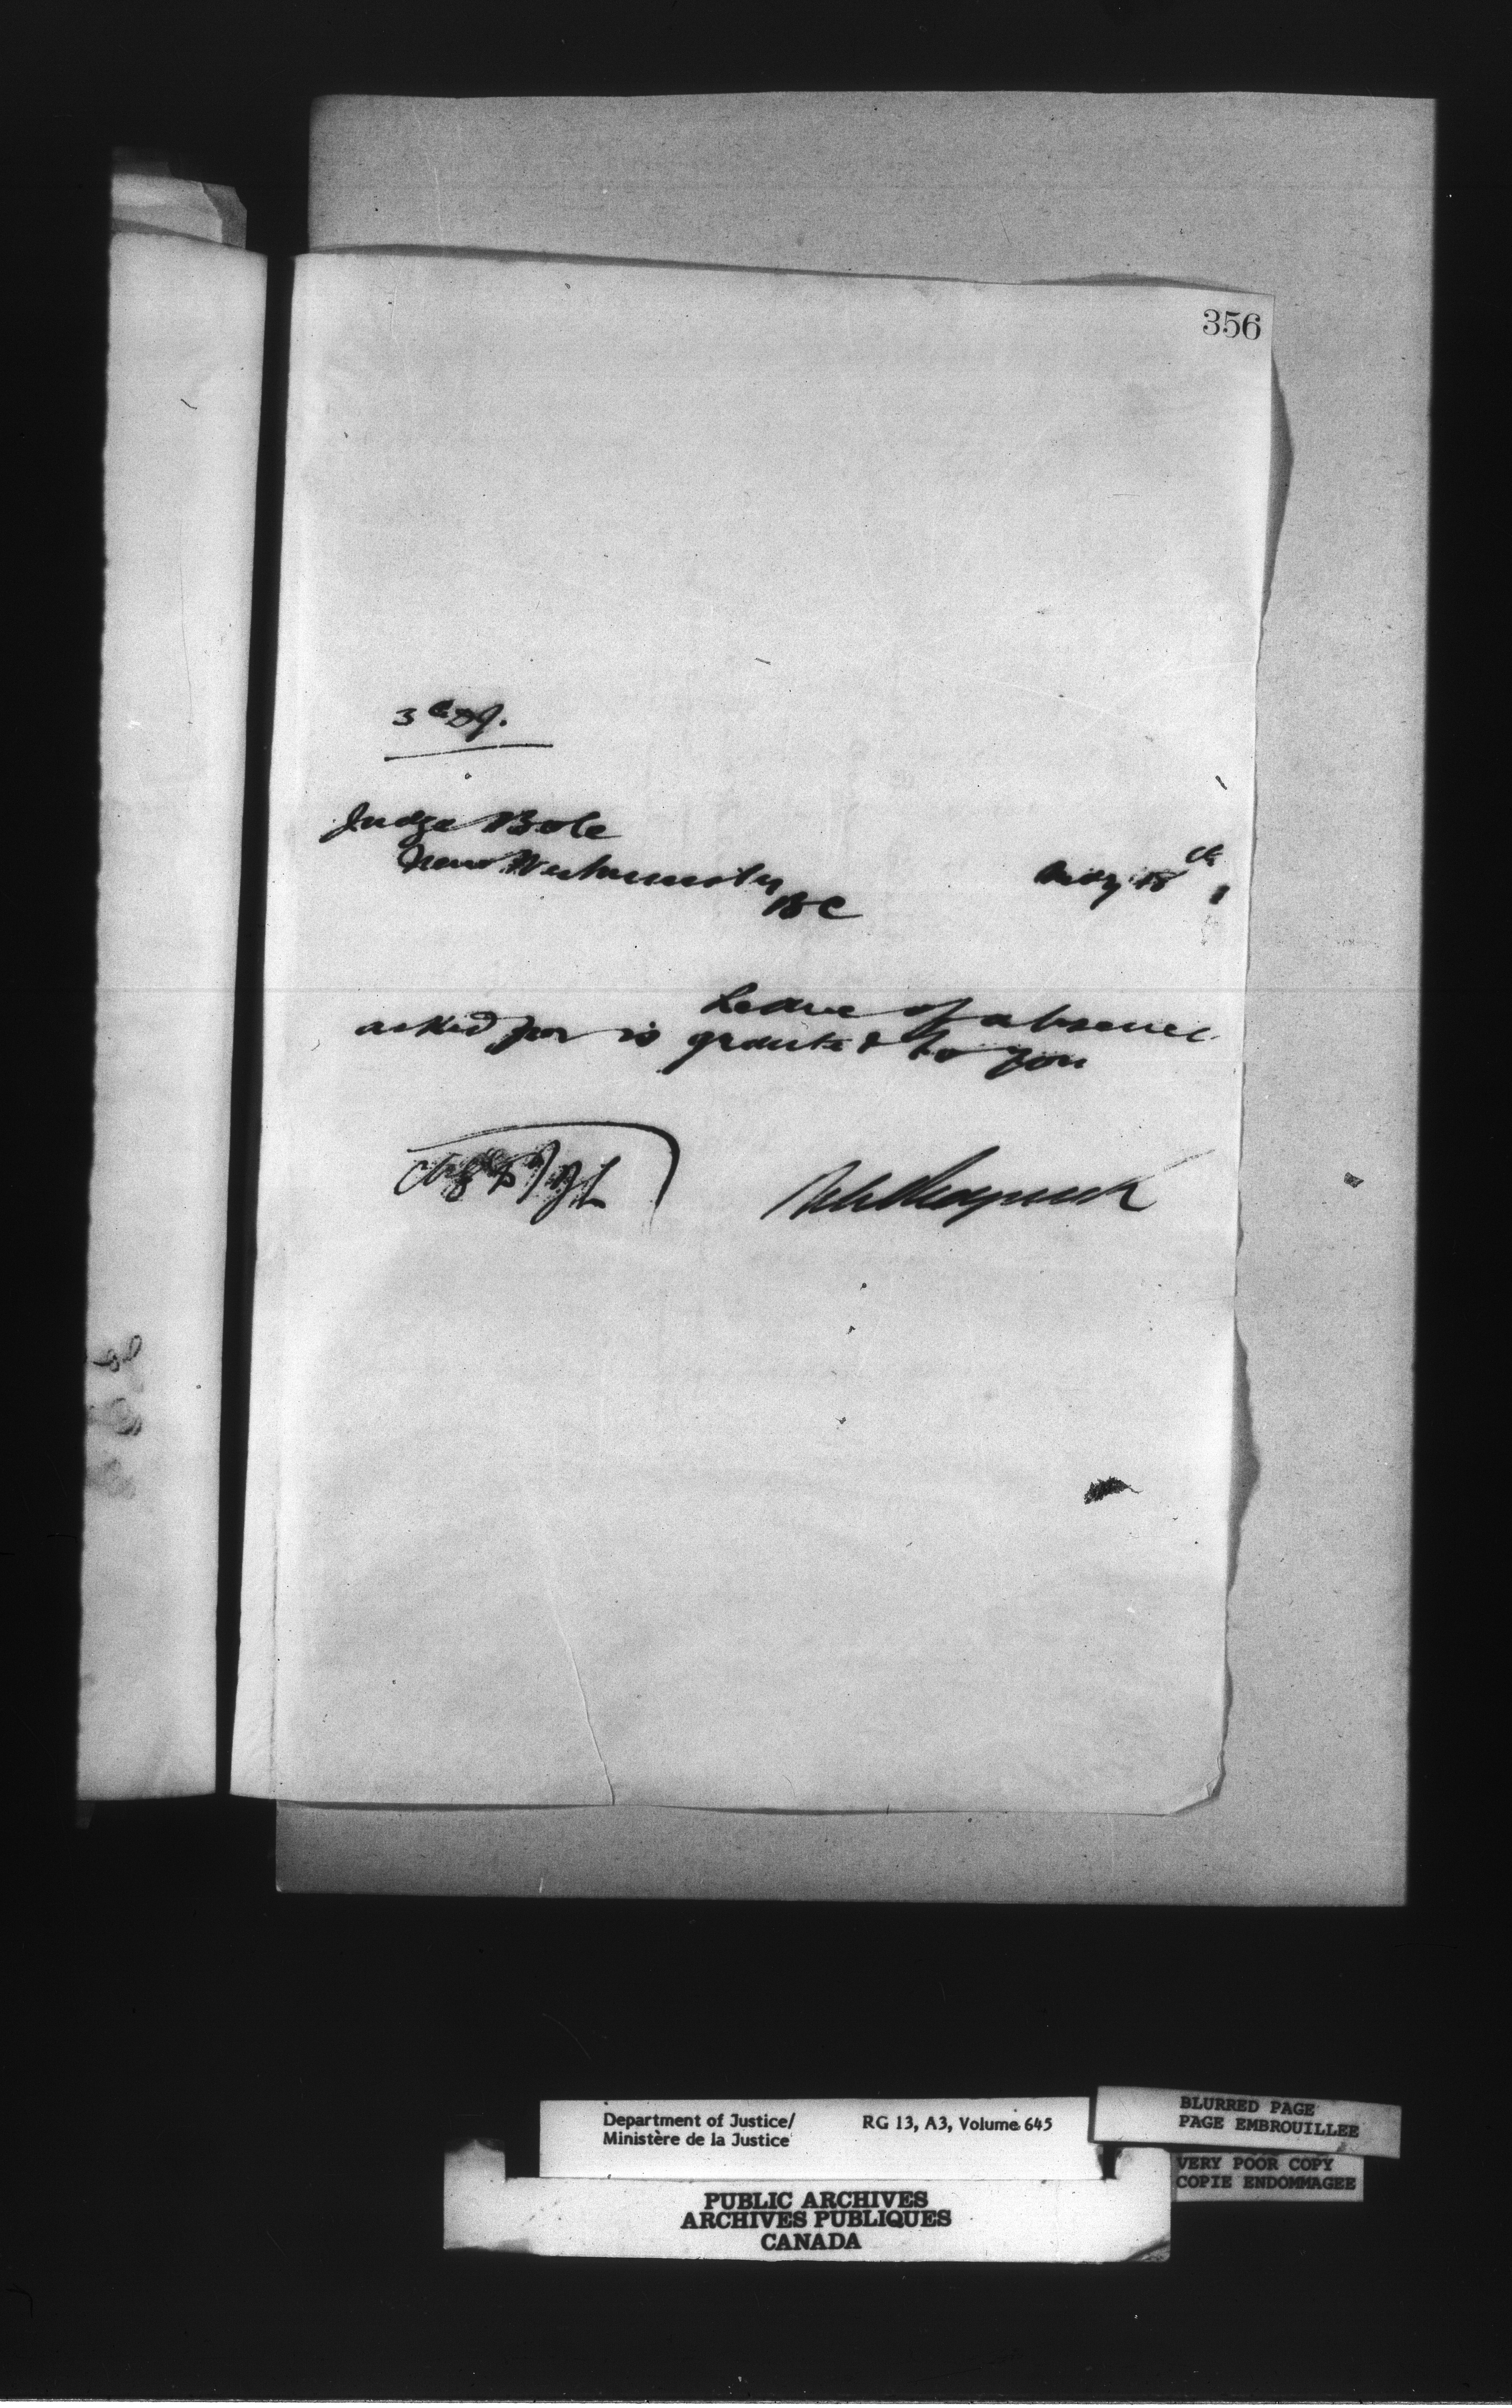 356
Judge Bole
New Westminster
BC
May 18th
Leave of absence
asked for is granted to you
Department of Justice/
Ministère de la Justice
RG 13, A3, Volume 645
BLURRED PAGE
PAGE EMBROUILLEE
VERY POOR COPY
COPIE ENDOMMAGEE
PUBLIC ARCHIVES
ARCHIVES PUBLIQUES
CANADA